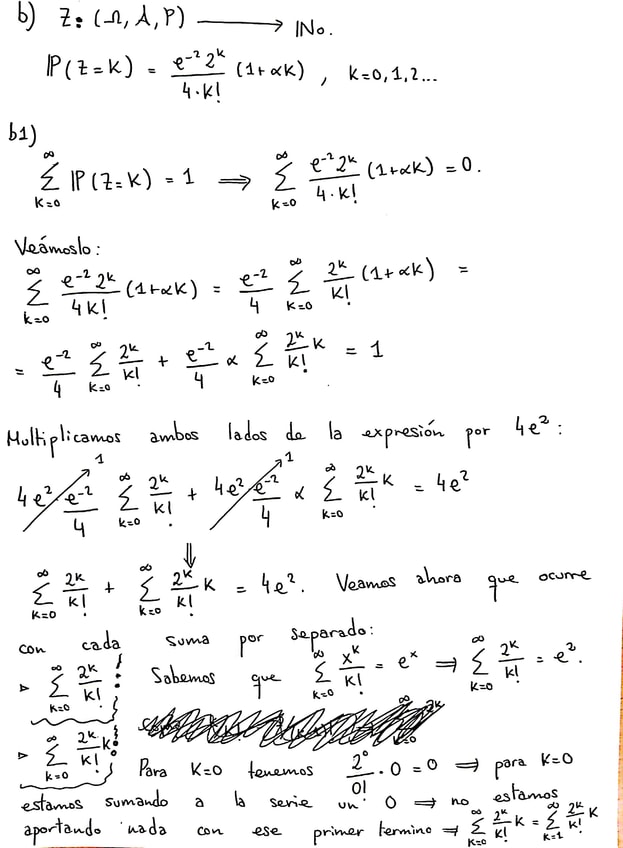 b) Z: (Ω, A, P) ⟶ ℕ₀.
ℙ(Z=k) = \frac{e^{-2} 2^k}{4·k!} (1+αk) , k=0,1,2...
b1)
\sum_{k=0}^{∞} ℙ(Z=k) = 1 ⟹ \sum_{k=0}^{∞} \frac{e^{-2} 2^k}{4·k!} (1+αk) = 0.
Veámoslo:
\sum_{k=0}^{∞} \frac{e^{-2} 2^k}{4k!} (1+αk) = \frac{e^{-2}}{4} \sum_{k=0}^{∞} \frac{2^k}{k!} (1+αk) =
= \frac{e^{-2}}{4} \sum_{k=0}^{∞} \frac{2^k}{k!} + \frac{e^{-2}}{4} α \sum_{k=0}^{∞} \frac{2^k}{k!} k = 1
Multiplicamos ambos lados de la expresión por 4e²:
4e² \frac{e^{-2}}{4} 1 \sum_{k=0}^{∞} \frac{2^k}{k!} + 4e² \frac{e^{-2}}{4} 1 α \sum_{k=0}^{∞} \frac{2^k}{k!} k = 4e²
⇓
\sum_{k=0}^{∞} \frac{2^k}{k!} + \sum_{k=0}^{∞} \frac{2^k}{k!} k = 4e². Veamos ahora que ocurre
con cada suma por separado:
▹ \sum_{k=0}^{∞} \frac{2^k}{k!} : Sabemos que \sum_{k=0}^{∞} \frac{x^k}{k!} = e^x ⟹ \sum_{k=0}^{∞} \frac{2^k}{k!} = e².
▹ \sum_{k=0}^{∞} \frac{2^k}{k!} k : Para k=0 tenemos \frac{2^0}{0!} · 0 = 0 ⟹ para k=0
estamos sumando a la serie un 0 ⟹ no estamos
aportando nada con ese primer termino ⟹ \sum_{k=0}^{∞} \frac{2^k}{k!} k = \sum_{k=1}^{∞} \frac{2^k}{k!} k